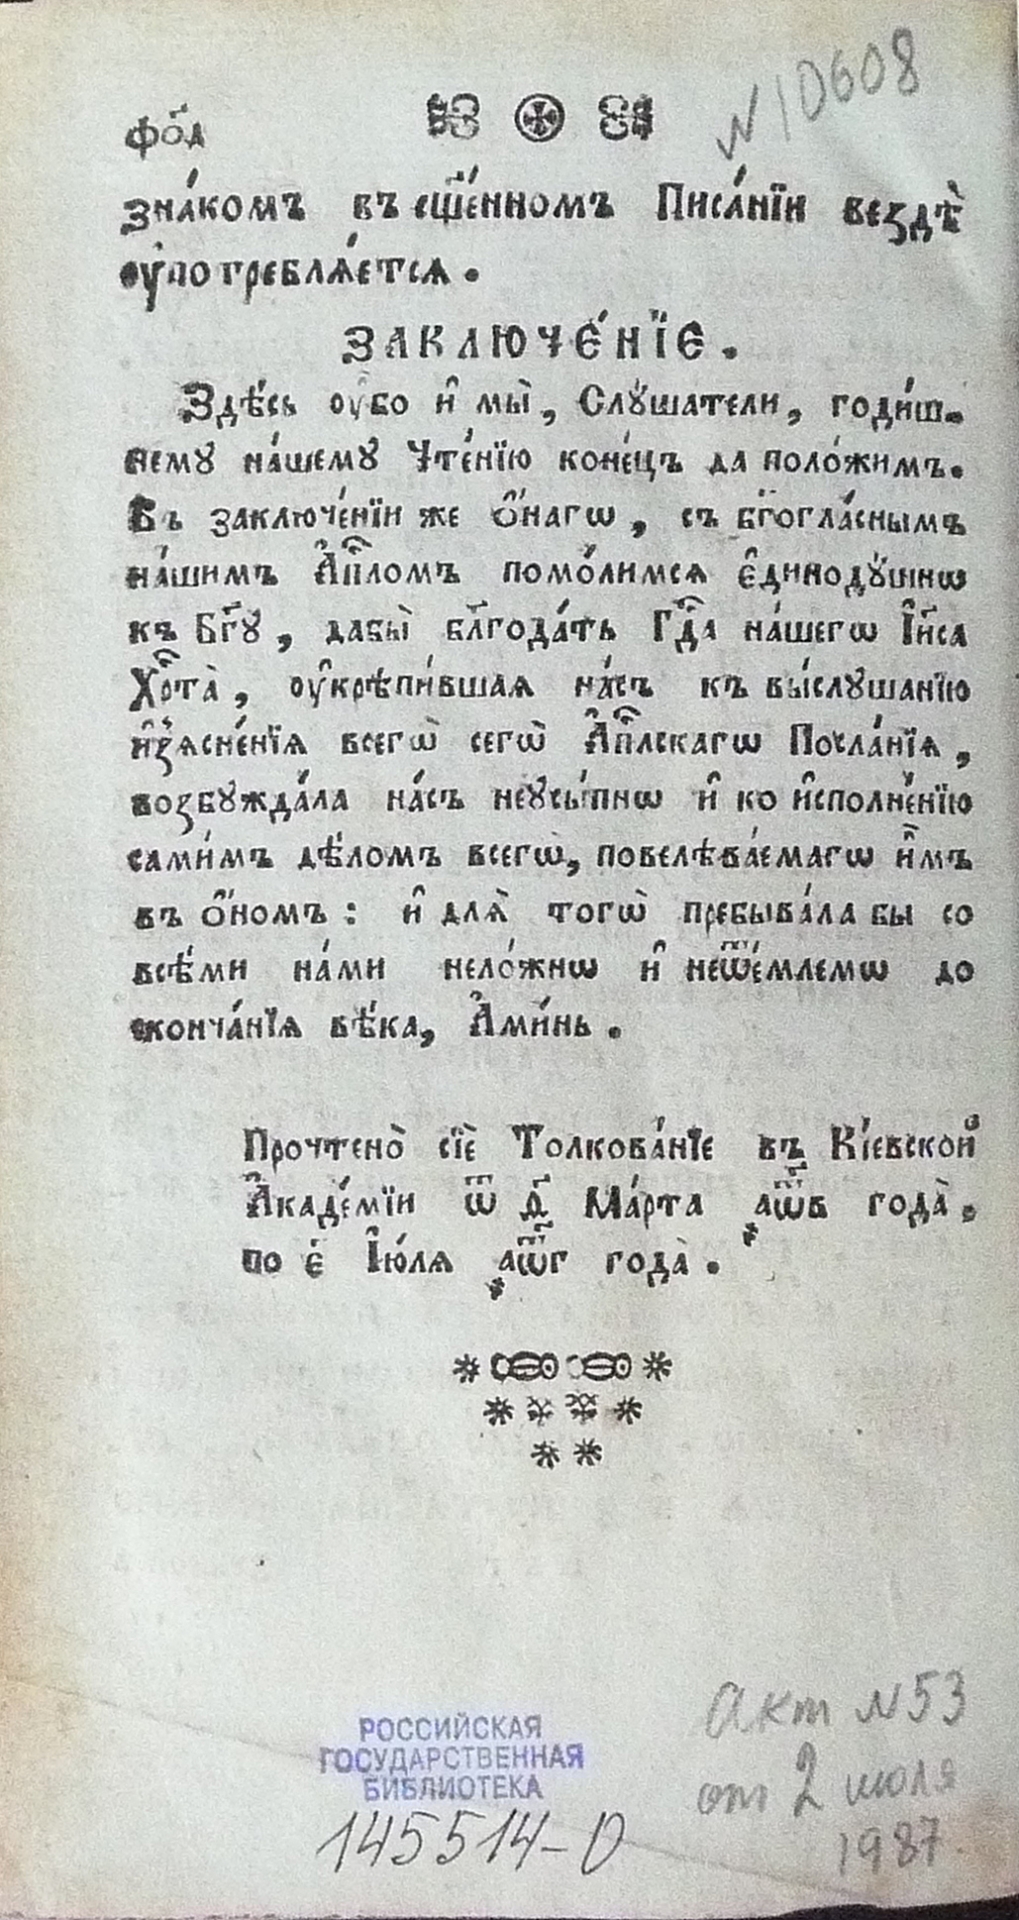 № 10608
фо҃д
зна́комъ въ сщ҃е́нномъ Писа́нїи вездѣ̀
ᲂу҆потреблѧ́етсѧ.
ЗАКЛЮЧЕ́НЇЕ.
Здѣ́сь ᲂу҆бо и҆ мы̀, Слꙋ́шатели, годи́ш-
немꙋ на́шемꙋ Чте́нїю коне́цъ да поло́жимъ.
Въ заключе́нїи же ѻ҆́нагѡ, съ бг҃огла́снымъ
на́шимъ А҆пⷭ҇ломъ помо́лимсѧ є҆динодꙋ́шнѡ
къ Бг҃ꙋ, дабы̀ блг҃ода́ть Гдⷭ҇а на́шегѡ І҆и҃са
Хрⷭ҇та̀, ᲂу҆крѣпи́вшаѧ на́съ къ вы́слꙋшанїю
и҆з̾ѧсне́нїѧ всегѡ̀ сегѡ̀ А҆пⷭ҇лскагѡ Посла́нїѧ,
возбꙋжда́ла на́съ неꙋсы́пнѡ и҆ ко и҆сполне́нїю
сами́мъ дѣ́ломъ всегѡ̀, повелѣва́емагѡ и҆́мъ
въ ѻ҆́номъ: и҆ длѧ̀ тогѡ̀ пребыва́ла бы со
всѣ́ми на́ми нело́жнѡ и҆ неѿе́млемѡ до
сконча́нїѧ вѣ́ка, А҆ми́нь.
Прочтено̀ сїѐ Толкова́нїе въ Кі́евской
А҆каде́мїи ѿ д҃ Ма́рта ҂аѿ҃в года̀.
по є҃ І҆ю́лѧ ҂аѿ҃г года̀.
РОССИЙСКАЯ
ГОСУДАРСТВЕННАЯ
БИБЛИОТЕКА
145514-О
Акт №53
от 2 июля
1987.